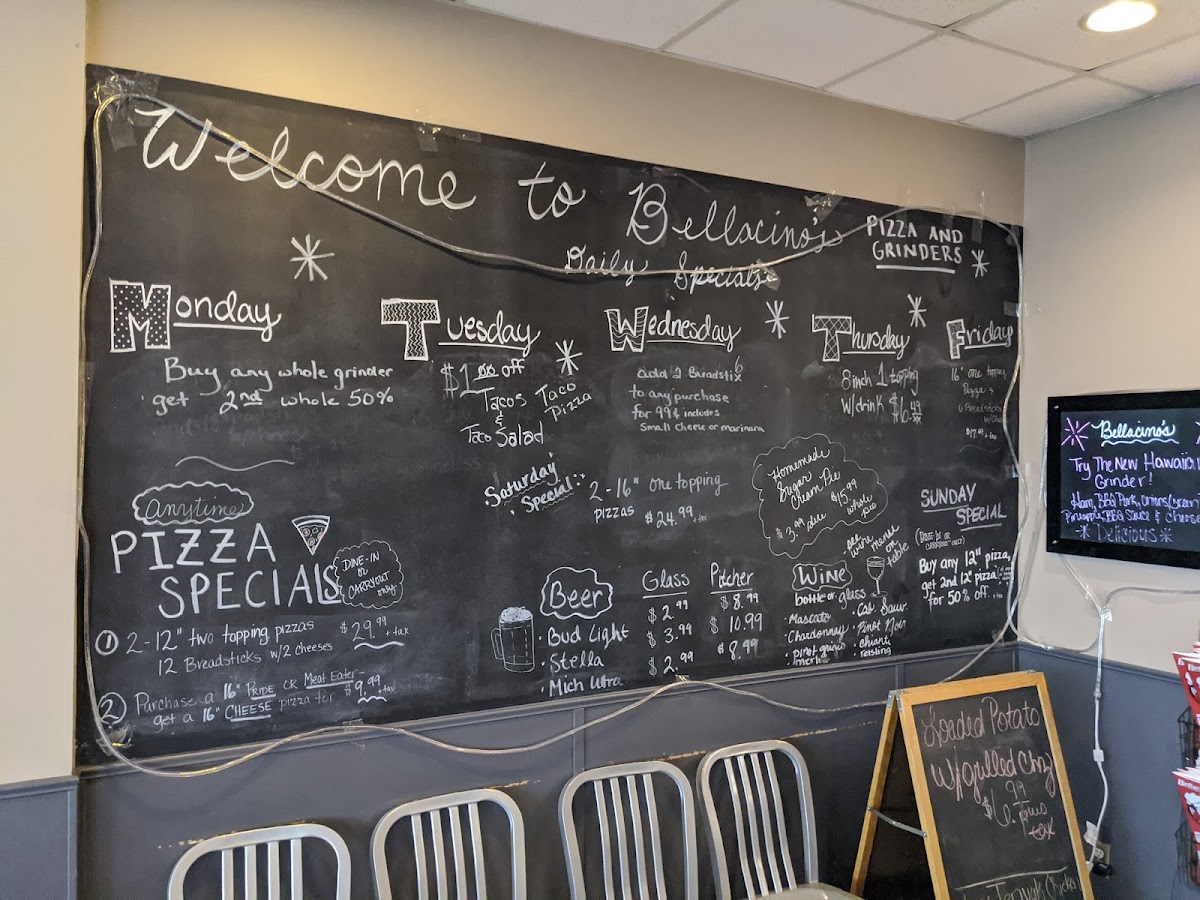 Welcome to Bellacino's
PIZZA AND
GRINDERS
Daily Specials
Monday
Buy any whole grinder
get 2nd whole 50%
Tuesday
$1.00 off
Tacos
&
Taco Salad
Taco
Pizza
Wednesday
add 2 Breadstix
to any purchase
for 99¢ includes
Small cheese or marinara
Thursday
8inch 1 topping
w/drink $6.49
Friday
16" one topping
6 Breadsticks
$17.99 + tax
Saturday
Special
2-16" one topping
pizzas $24.99 + tax
Homemade
Sugar
Cream Pie
$3.99 slice
$15.99
whole
pie
SUNDAY
SPECIAL
(DINE-IN or
CARRYOUT ONLY)
Buy any 12" pizza,
get 2nd 12" pizza
for 50% off. + tax
anytime
PIZZA
SPECIALS
DINE-IN
or
CARRYOUT
only
① 2-12" two topping pizzas
12 Breadsticks w/2 cheeses
$29.99 + tax
② Purchase a 16" PRIDE or Meat Eater-
get a 16" CHEESE pizza for $9.99 + tax
Beer
Glass Pitcher
• Bud Light $2.99 $8.99
• Stella $3.99 $10.99
• Mich Ultra $2.99 $8.99
Wine
bottle or glass
see
wine menu
on
table
• Mascato
• Chardonnay
• pinot grigio
• merlot
• Cab. Sauv.
• Pinot Noir
• chianti
• reisling
Bellacino's
Try The New Hawaiian
Grinder!
Ham, BBQ Pork, Onions
Pineapple, BBQ Sauce & cheese
Delicious
Loaded Potato
W/grilled Chix
$6.99 Plus
tax